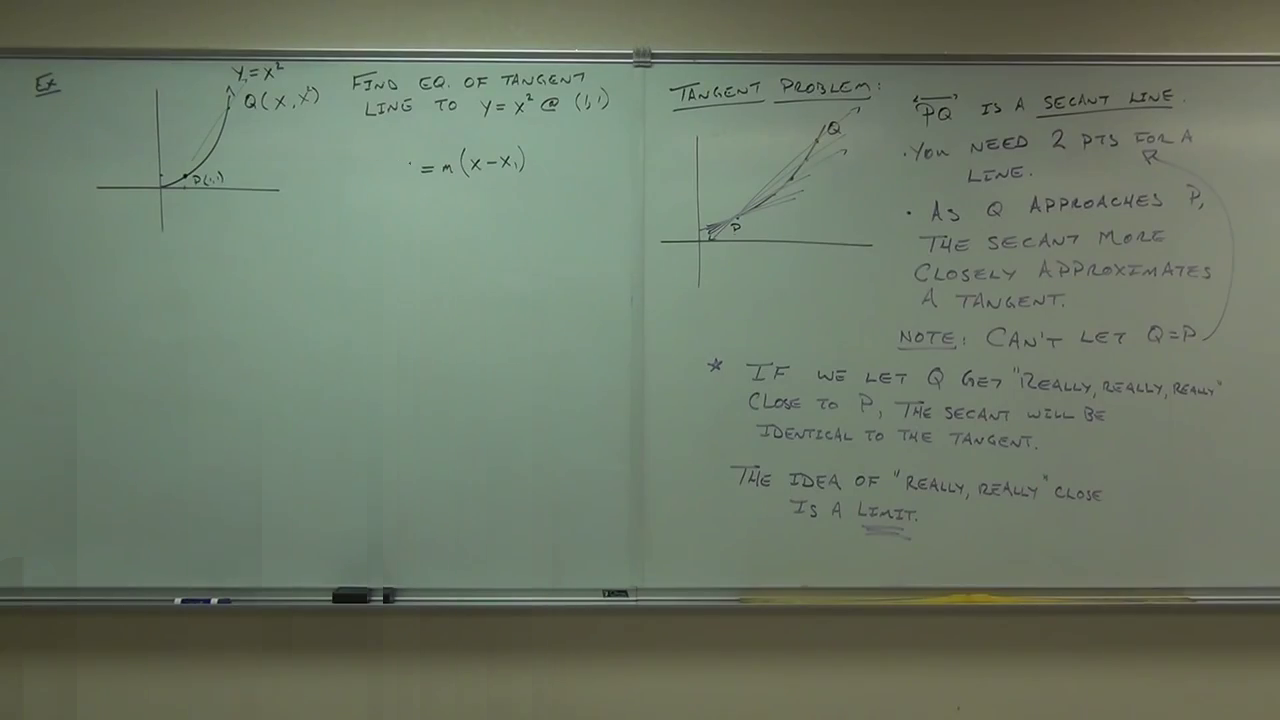 Ex
y=x²
Q(x,x²)
P(1,1)
FIND EQ. OF TANGENT
LINE TO y=x² @ (1,1)
=m(x-x₁)
TANGENT PROBLEM:
Q
P
"PQ" IS A SECANT LINE.
·YOU NEED 2 PTS FOR A
LINE.
· AS Q APPROACHES P,
THE SECANT MORE
CLOSELY APPROXIMATES
A TANGENT.
NOTE: CAN'T LET Q=P
* IF WE LET Q GET "REALLY, REALLY, REALLY"
CLOSE TO P, THE SECANT WILL BE
IDENTICAL TO THE TANGENT.
THE IDEA OF "REALLY, REALLY" CLOSE
IS A LIMIT.